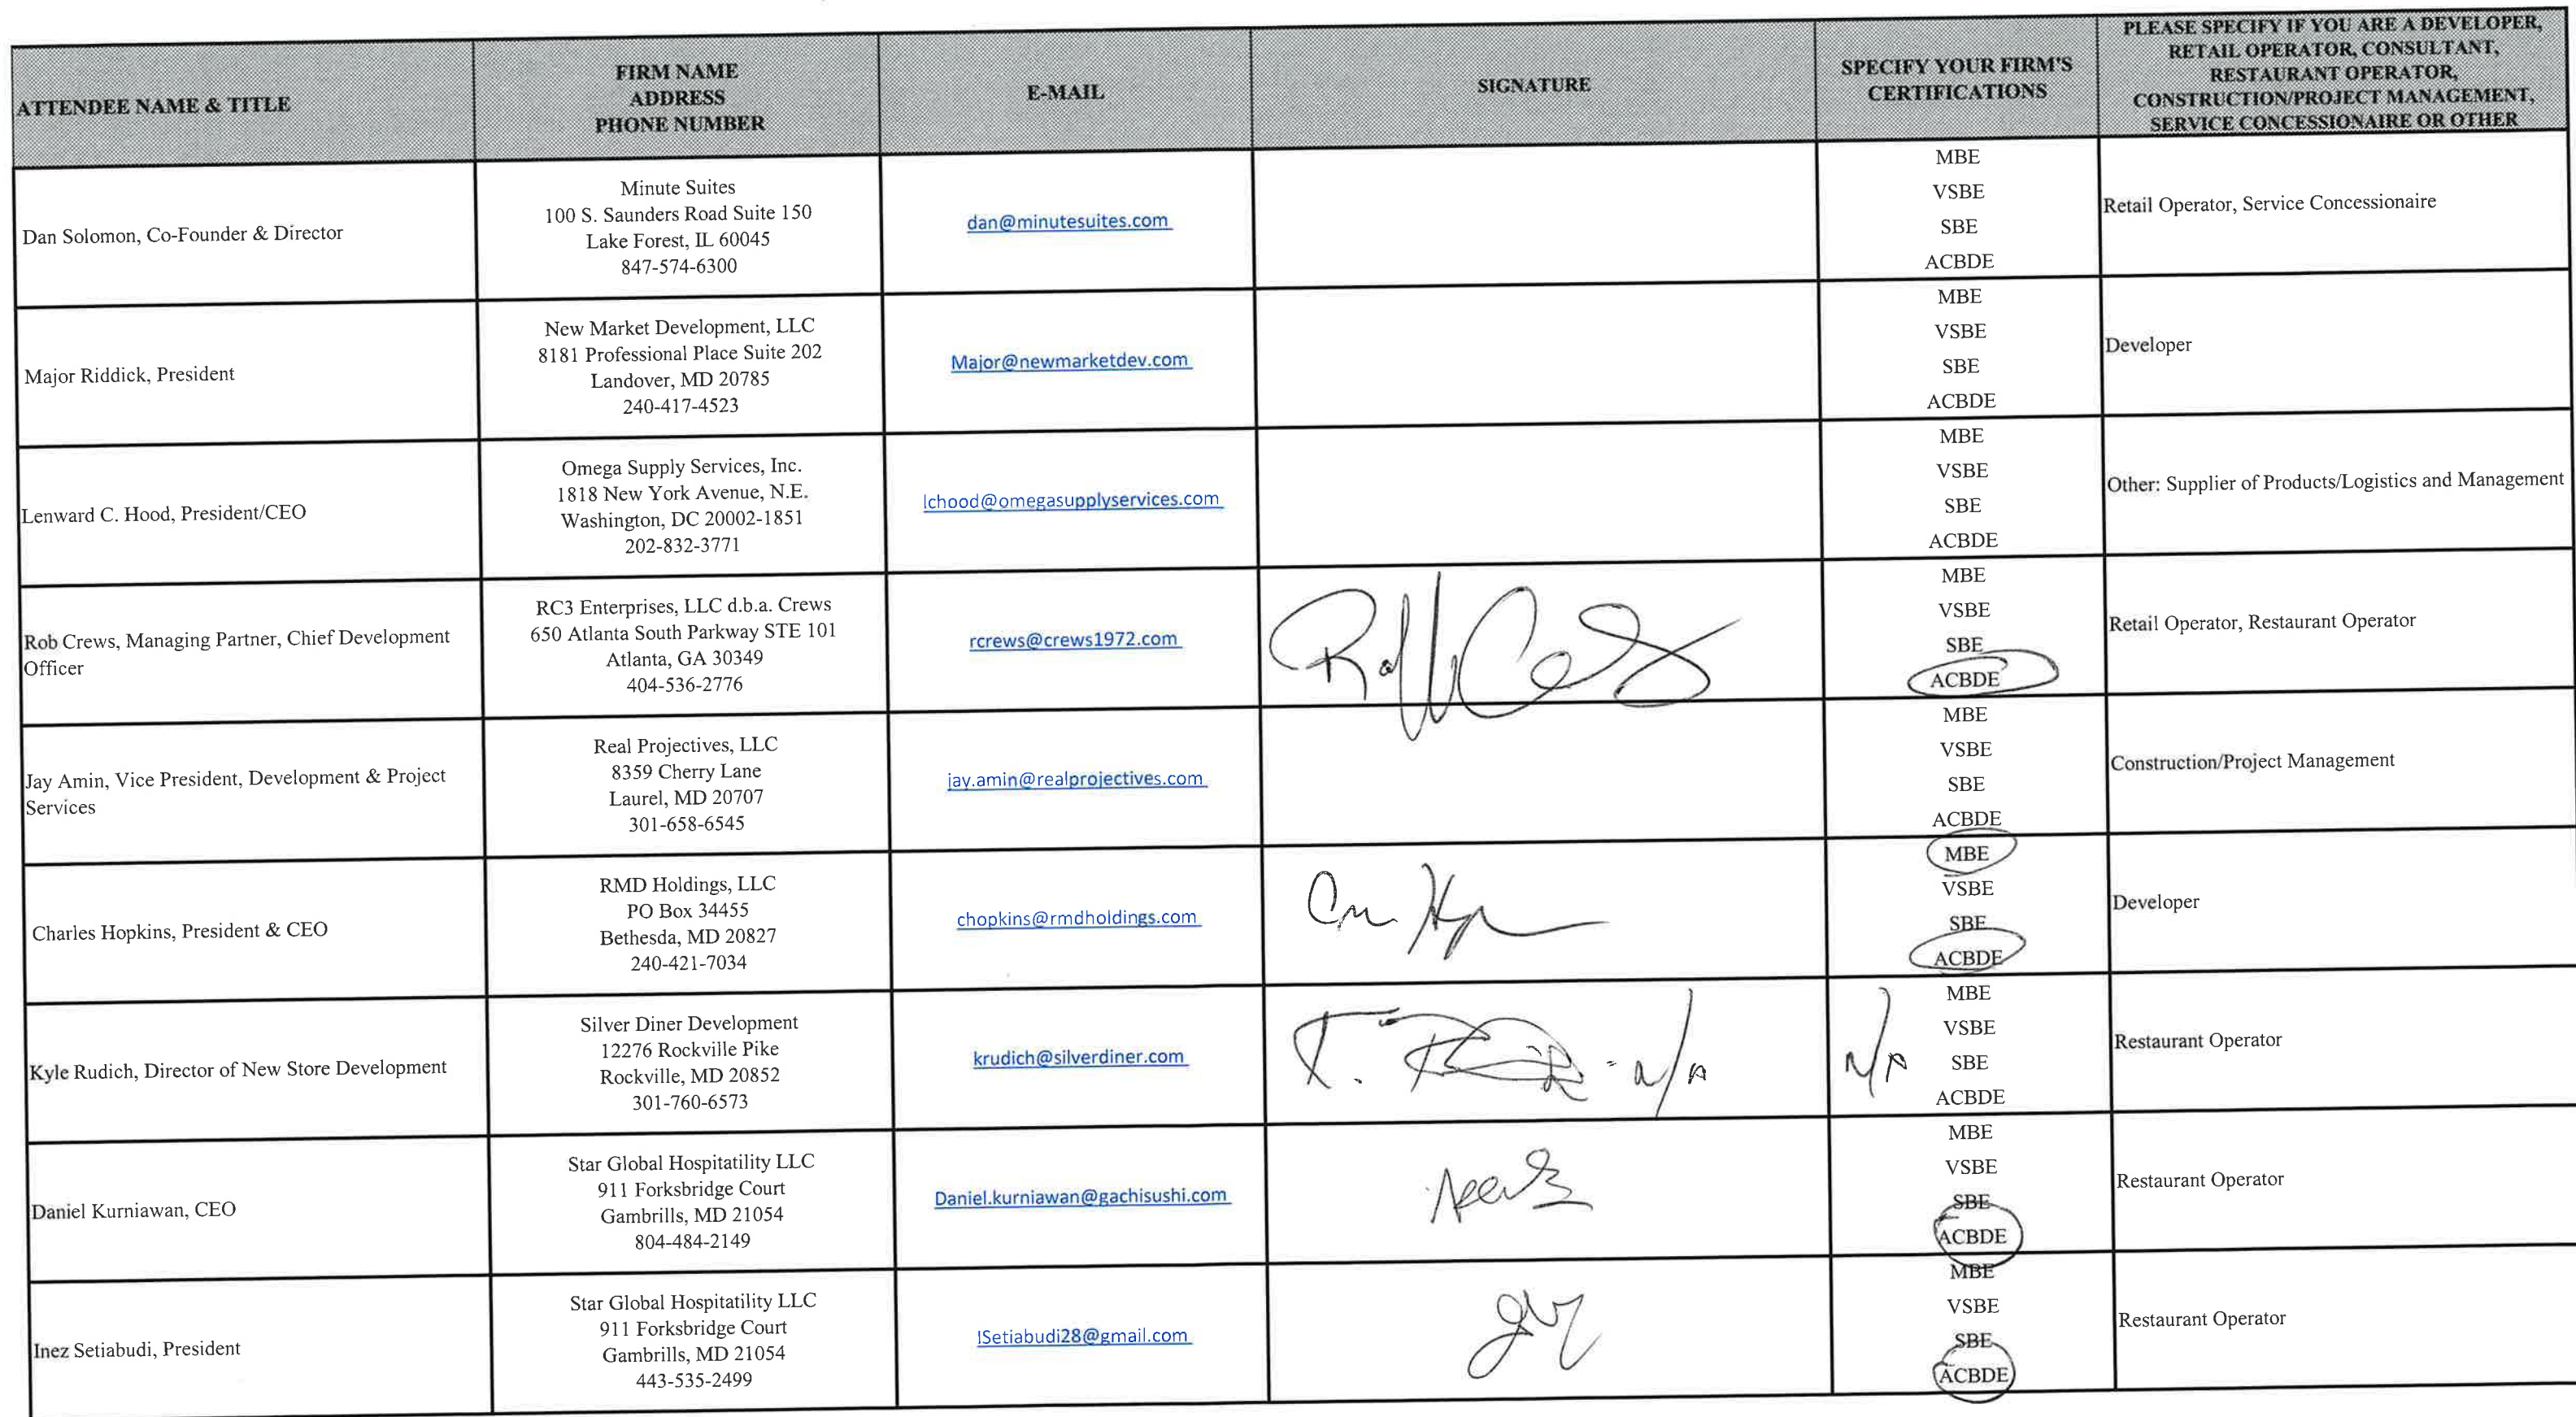 ATTENDEE NAME & TITLE
FIRM NAME
ADDRESS
PHONE NUMBER
E-MAIL
SIGNATURE
SPECIFY YOUR FIRM'S
CERTIFICATIONS
PLEASE SPECIFY IF YOU ARE A DEVELOPER,
RETAIL OPERATOR, CONSULTANT,
RESTAURANT OPERATOR,
CONSTRUCTION/PROJECT MANAGEMENT,
SERVICE CONCESSIONAIRE OR OTHER
Dan Solomon, Co-Founder & Director
Minute Suites
100 S. Saunders Road Suite 150
Lake Forest, IL 60045
847-574-6300
dan@minutesuites.com
MBE
VSBE
SBE
ACBDE
Retail Operator, Service Concessionaire
Major Riddick, President
New Market Development, LLC
8181 Professional Place Suite 202
Landover, MD 20785
240-417-4523
Major@newmarketdev.com
MBE
VSBE
SBE
ACBDE
Developer
Lenward C. Hood, President/CEO
Omega Supply Services, Inc.
1818 New York Avenue, N.E.
Washington, DC 20002-1851
202-832-3771
lchood@omegasupplyservices.com
MBE
VSBE
SBE
ACBDE
Other: Supplier of Products/Logistics and Management
Rob Crews, Managing Partner, Chief Development
Officer
RC3 Enterprises, LLC d.b.a. Crews
650 Atlanta South Parkway STE 101
Atlanta, GA 30349
404-536-2776
rcrews@crews1972.com
MBE
VSBE
SBE
ACBDE
Retail Operator, Restaurant Operator
Jay Amin, Vice President, Development & Project
Services
Real Projectives, LLC
8359 Cherry Lane
Laurel, MD 20707
301-658-6545
jay.amin@realprojectives.com
MBE
VSBE
SBE
ACBDE
Construction/Project Management
Charles Hopkins, President & CEO
RMD Holdings, LLC
PO Box 34455
Bethesda, MD 20827
240-421-7034
chopkins@rmdholdings.com
MBE
VSBE
SBE
ACBDE
Developer
Kyle Rudich, Director of New Store Development
Silver Diner Development
12276 Rockville Pike
Rockville, MD 20852
301-760-6573
krudich@silverdiner.com
- N/A
N/A
MBE
VSBE
SBE
ACBDE
Restaurant Operator
Daniel Kurniawan, CEO
Star Global Hospitatility LLC
911 Forksbridge Court
Gambrills, MD 21054
804-484-2149
Daniel.kurniawan@gachisushi.com
MBE
VSBE
SBE
ACBDE
Restaurant Operator
Inez Setiabudi, President
Star Global Hospitatility LLC
911 Forksbridge Court
Gambrills, MD 21054
443-535-2499
ISetiabudi28@gmail.com
MBE
VSBE
SBE
ACBDE
Restaurant Operator